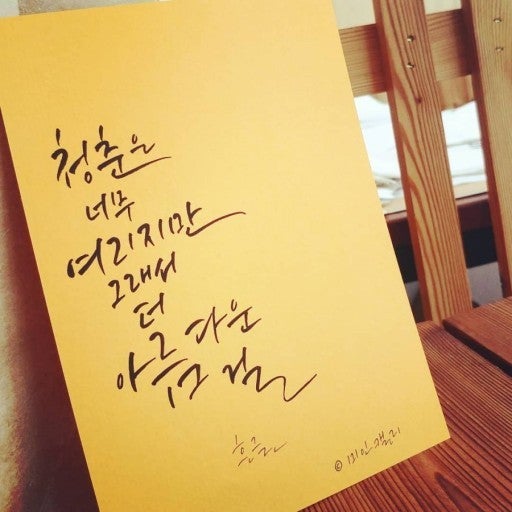 청춘은
너무
여리지만
그래서
더
아름다운
걸
© 미인캘리